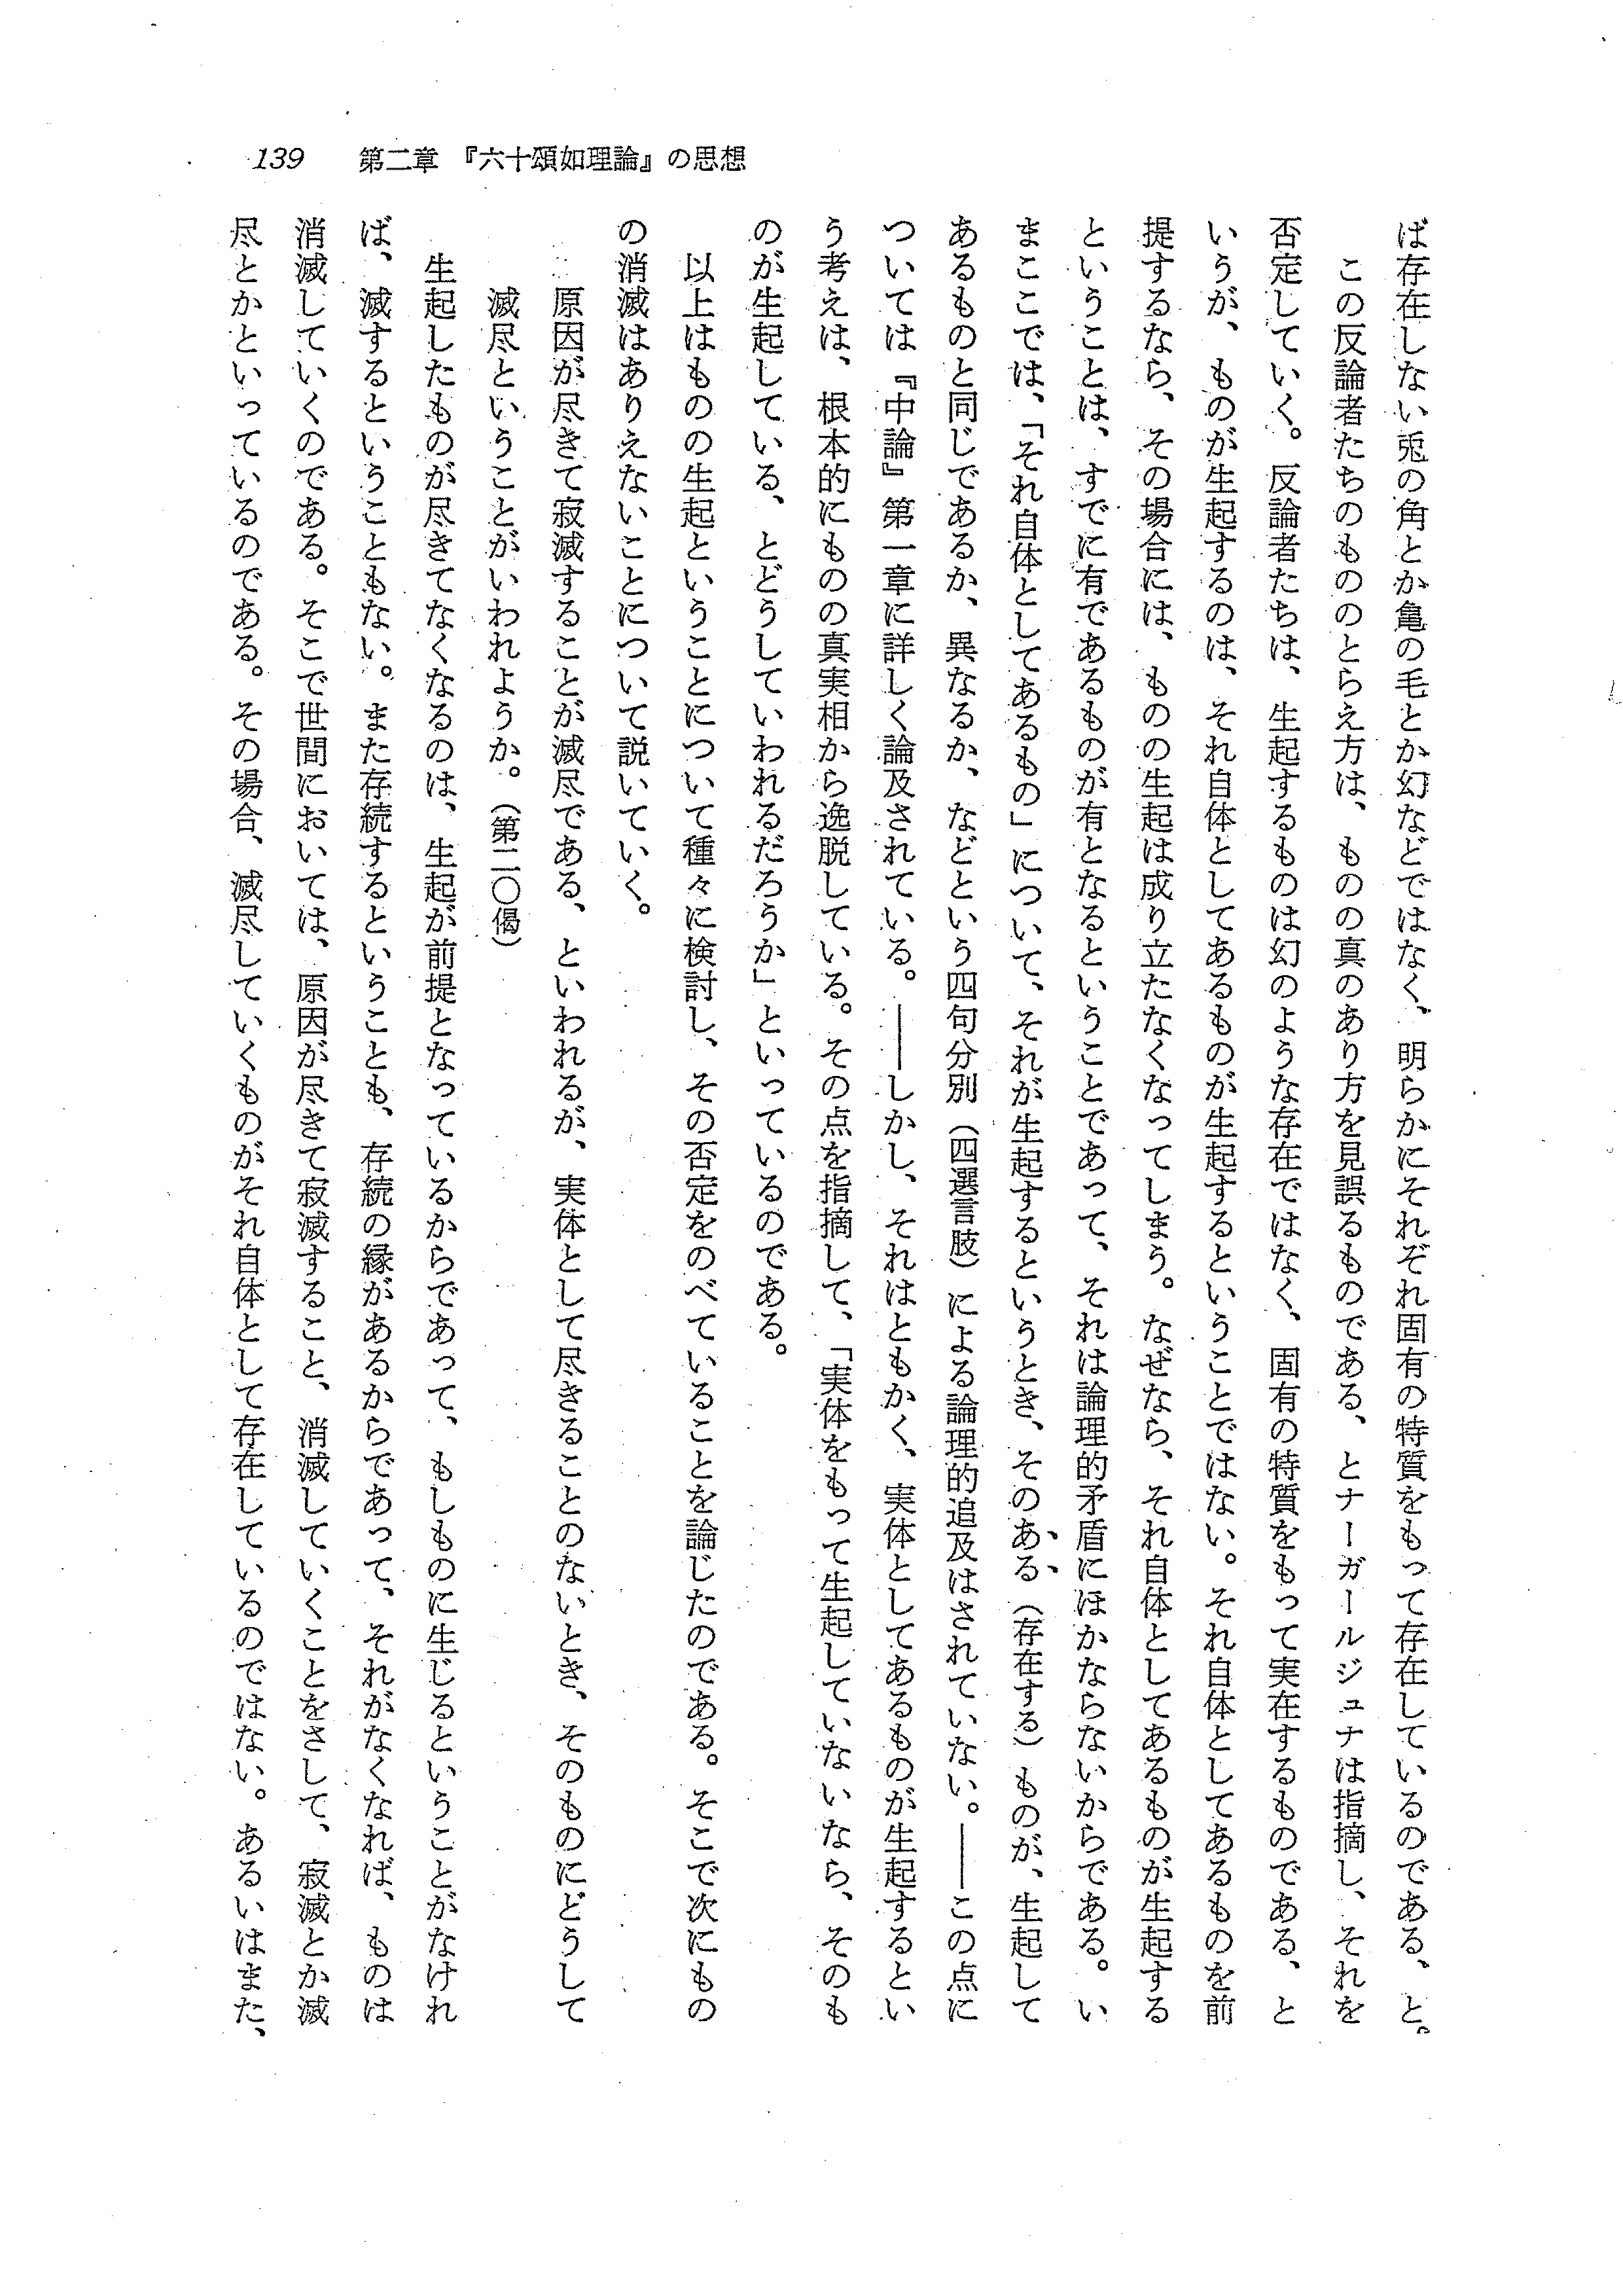 139　第二章　『六十頌如理論』の思想
ば存在しない兎の角とか亀の毛とか幻などではなく、明らかにそれぞれ固有の特質をもって存在しているのである、と。
　この反論者たちのもののとらえ方は、ものの真のあり方を見誤るものである、とナーガールジュナは指摘し、それを
否定していく。反論者たちは、生起するものは幻のような存在ではなく、固有の特質をもって実在するものである、と
いうが、ものが生起するのは、それ自体としてあるものが生起するということではない。それ自体としてあるものを前
提するなら、その場合には、ものの生起は成り立たなくなってしまう。なぜなら、それ自体としてあるものが生起する
ということは、すでに有であるものが有となるということであって、それは論理的矛盾にほかならないからである。い
まここでは、「それ自体としてあるもの」について、それが生起するというとき、そのある（存在する）ものが、生起して
あるものと同じであるか、異なるか、などという四句分別（四選言肢）による論理的追及はされていない。――この点に
ついては『中論』第一章に詳しく論及されている。――しかし、それはともかく、実体としてあるものが生起するとい
う考えは、根本的にものの真実相から逸脱している。その点を指摘して、「実体をもって生起していないなら、そのも
のが生起している、とどうしていわれるだろうか」といっているのである。
　以上はものの生起ということについて種々に検討し、その否定をのべていることを論じたのである。そこで次にもの
の消滅はありえないことについて説いていく。
　　原因が尽きて寂滅することが滅尽である、といわれるが、実体として尽きることのないとき、そのものにどうして
　　滅尽ということがいわれようか。（第二〇偈）
　生起したものが尽きてなくなるのは、生起が前提となっているからであって、もしものに生じるということがなけれ
ば、滅するということもない。また存続するということも、存続の縁があるからであって、それがなくなれば、ものは
消滅していくのである。そこで世間においては、原因が尽きて寂滅すること、消滅していくことをさして、寂滅とか滅
尽とかといっているのである。その場合、滅尽していくものがそれ自体として存在しているのではない。あるいはまた、